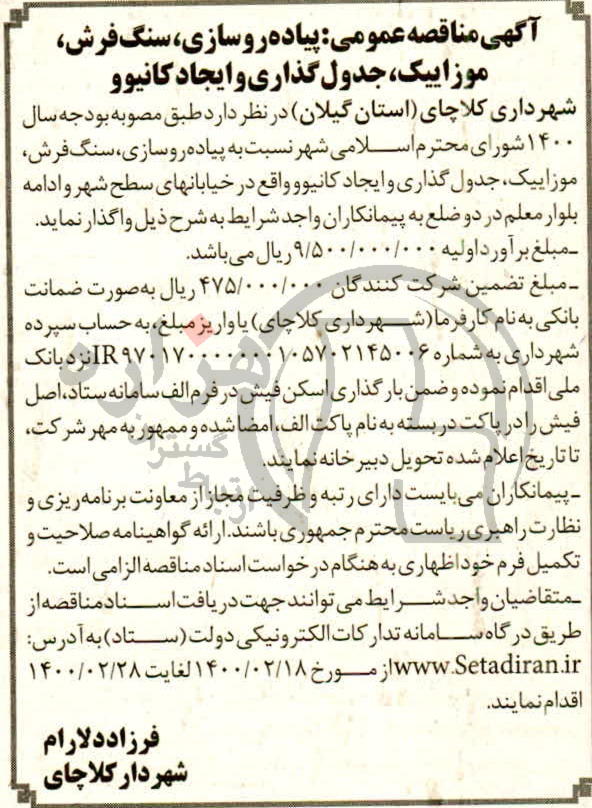 آگهی مناقصه عمومی: پیاده‌روسازی، سنگ‌فرش،
موزاییک، جدول‌گذاری و ایجاد کانیوو
شهرداری کلاچای (استان گیلان) در نظر دارد طبق مصوبه بودجه سال
۱۴۰۰ شورای محترم اسلامی شهر نسبت به پیاده‌روسازی، سنگ‌فرش،
موزاییک، جدول‌گذاری و ایجاد کانیوو واقع در خیابانهای سطح شهر و ادامه
بلوار معلم در دو ضلع به پیمانکاران واجد شرایط به شرح ذیل واگذار نماید.
ـ مبلغ برآورد اولیه ۹/۵۰۰/۰۰۰/۰۰۰ ریال می‌باشد.
ـ مبلغ تضمین شرکت کنندگان ۴۷۵/۰۰۰/۰۰۰ ریال به‌صورت ضمانت
بانکی به نام کارفرما (شهرداری کلاچای) یا واریز مبلغ، به حساب سپرده
شهرداری به شماره IR۹۷۰۱۷۰۰۰۰۰۰۰۱۰۵۷۰۲۱۴۵۰۰۶ نزد بانک
ملی اقدام نموده و ضمن بارگذاری اسکن فیش در فرم الف سامانه ستاد، اصل
فیش را در پاکت در بسته به نام پاکت الف، امضا شده و ممهور به مهر شرکت،
تا تاریخ اعلام شده تحویل دبیرخانه نمایند.
ـ پیمانکاران می‌بایست دارای رتبه و ظرفیت مجاز از معاونت برنامه‌ریزی و
نظارت راهبری ریاست محترم جمهوری باشند. ارائه گواهینامه صلاحیت و
تکمیل فرم خوداظهاری به هنگام درخواست اسناد مناقصه الزامی است.
ـ متقاضیان واجد شرایط می توانند جهت دریافت اسناد مناقصه از
طریق درگاه سامانه تدارکات الکترونیکی دولت (ستاد) به آدرس:
www.Setadiran.ir از مورخ ۱۴۰۰/۰۲/۱۸ لغایت ۱۴۰۰/۰۲/۲۸
اقدام نمایند.
فرزاد دلارام
شهردار کلاچای
هزاره
گستران